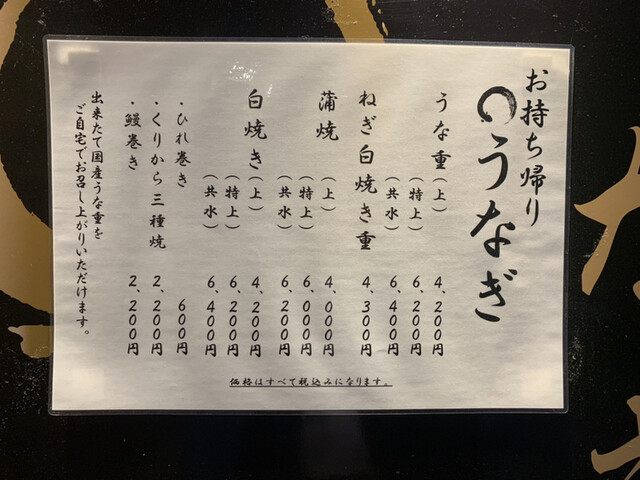 お持ち帰り
うなぎ
うな重（上） 4,200円
（特上） 6,200円
（共水） 6,400円
ねぎ白焼き重 4,300円
蒲焼（上） 4,000円
（特上） 6,000円
（共水） 6,200円
白焼き（上） 4,200円
（特上） 6,200円
（共水） 6,400円
・ひれ巻き 600円
・くりから三種焼 2,200円
・鰻巻き 2,200円
出来たて国産うな重を
ご自宅でお召し上がりいただけます。
価格はすべて税込みになります。